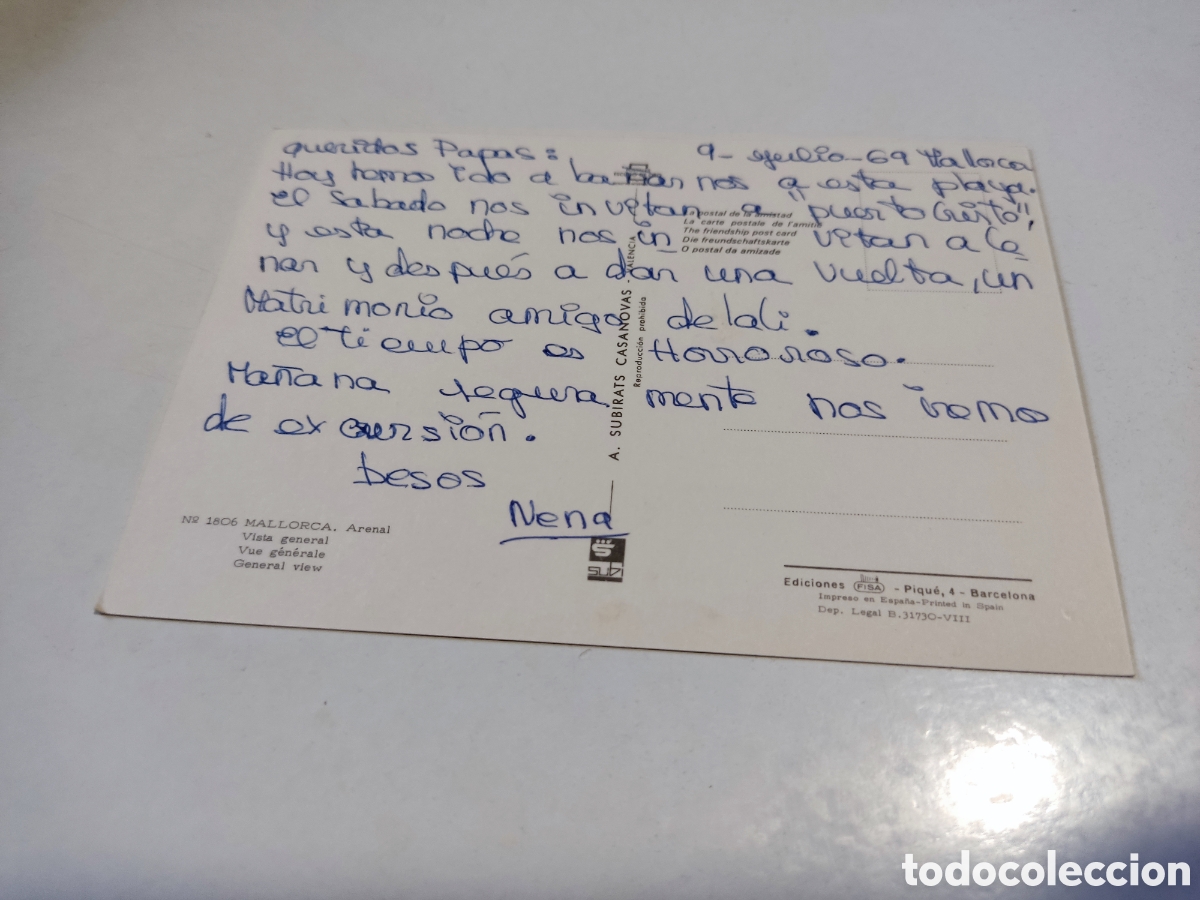 queridos Papas: 9-Julio-69 Malloca
Hoy hemos ido a bañarnos a esta playa.
el sabado nos invitan a "puerto Cristo",
y esta noche nos in vitan a ce
nar y después a dar una vuelta, un
Matrimonio amigo de lali.
el tiempo es Horroroso.
Mañana segura mente nos iremo
de excursión.
besos
Nena
postal de la amistad
La carte postale de l'amitié
The friendship post card
Die freundschaftskarte
O postal da amizade
A. SUBIRATS CASANOVAS - VALENCIA
Reproducción prohibida
Nº 1806 MALLORCA. Arenal
Vista general
Vue générale
General view
SUBI
Ediciones FISA - Piqué, 4 - Barcelona
Impreso en España-Printed in Spain
Dep. Legal B.31730-VIII
todocoleccion